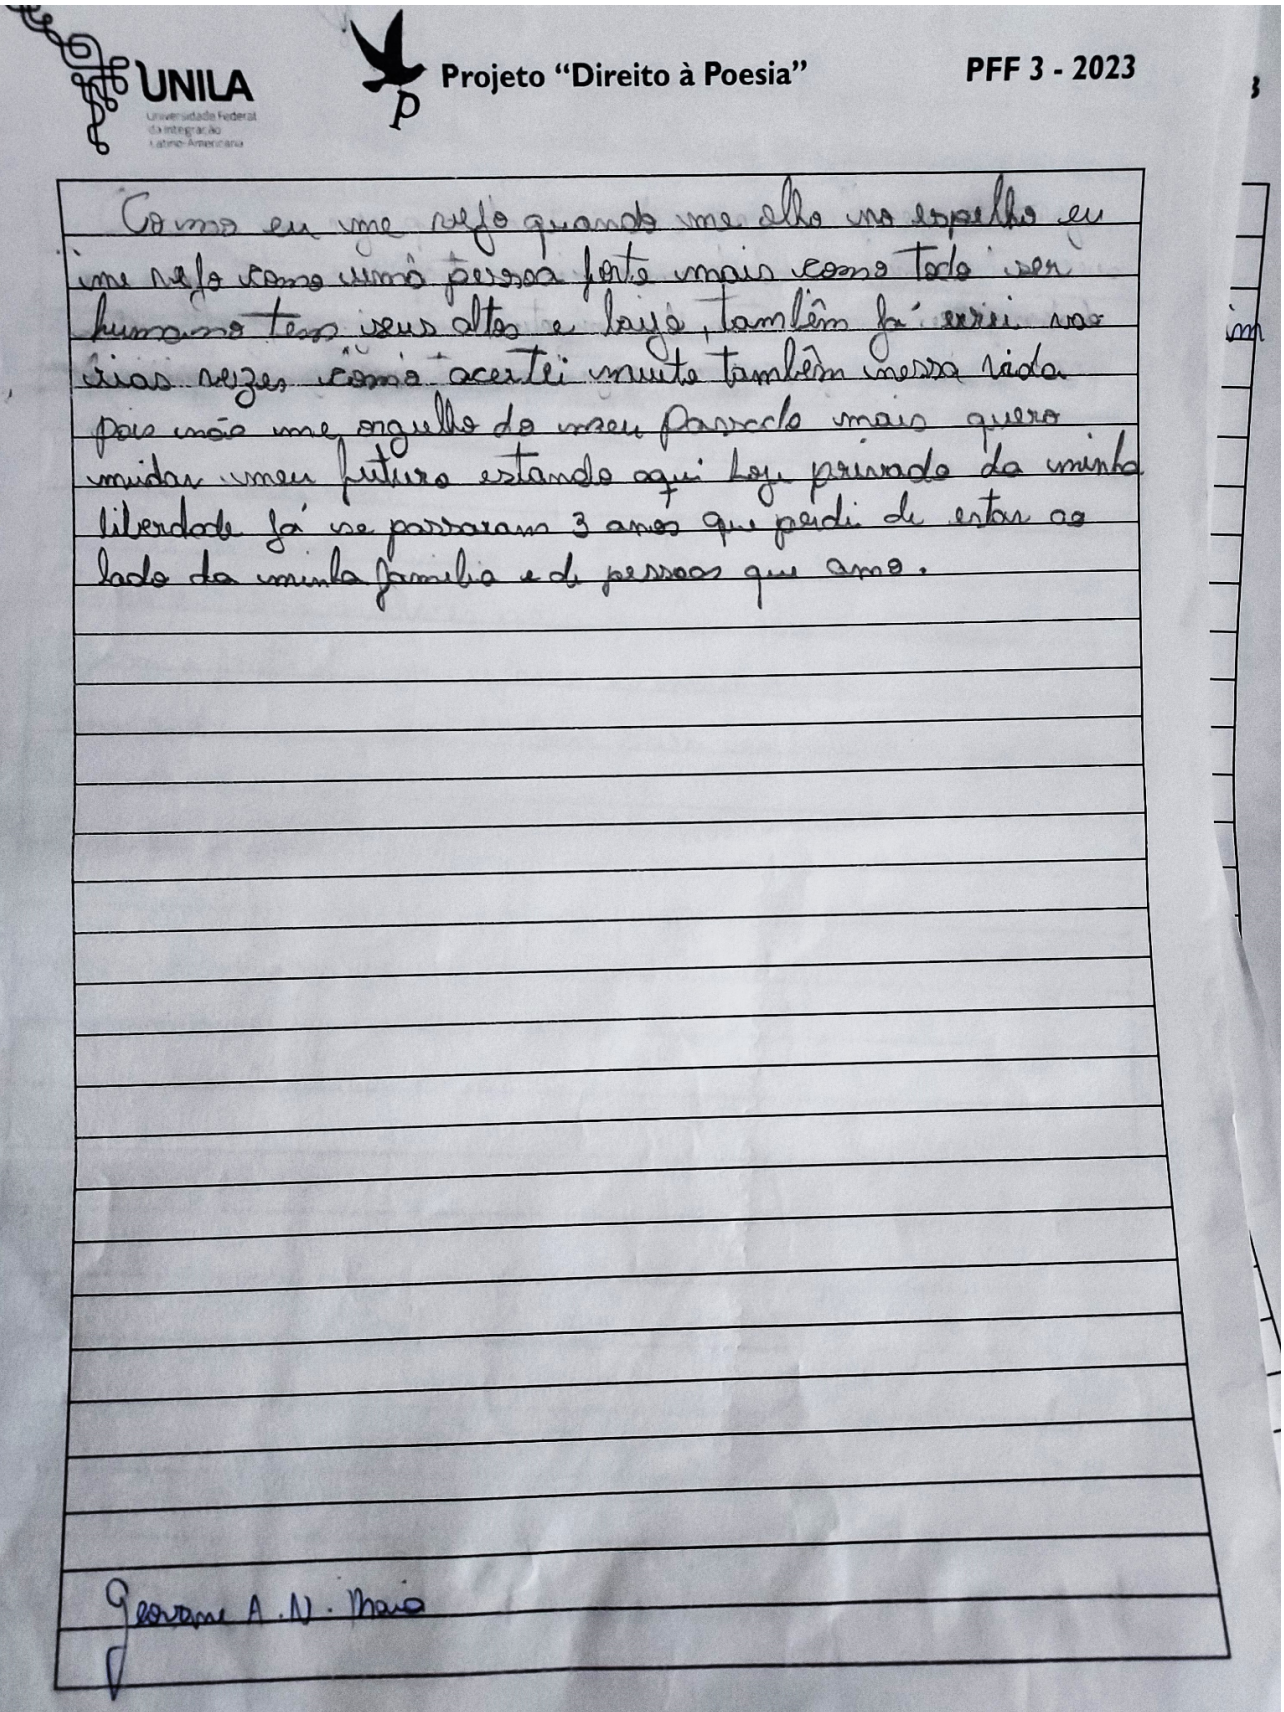 UNILA
Universidade Federal
da Integração
Latino-Americana
P
Projeto "Direito à Poesia"
PFF 3 - 2023
Como eu me vejo quando me olho no espelho eu
me vejo como uma pessoa forte mais como todo ser
humano tem seus altos e baixo, também já errei va-
rias vezes como acertei muito também nessa vida
pois não me orgulho do meu passado mais quero
mudar meu futuro estando aqui hoje privado da minha
liberdade já se passaram 3 anos que perdi de estar ao
lado da minha família e de pessoas que amo.
Geovane A. N. Maia